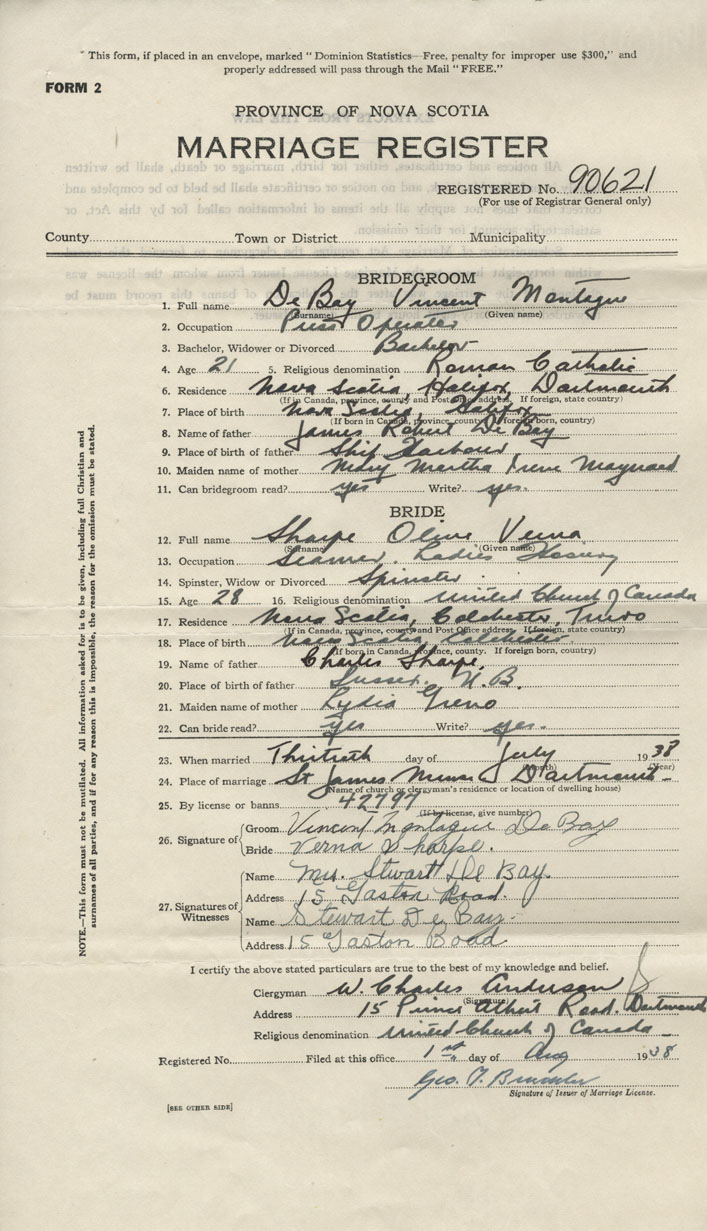 "This form, if placed in an envelope, marked "Dominion Statistics—Free, penalty for improper use $300," and
properly addressed will pass through the Mail "FREE."
FORM 2
PROVINCE OF NOVA SCOTIA
MARRIAGE REGISTER
REGISTERED No. 90621
(For use of Registrar General only)
County Town or District Municipality
BRIDEGROOM
1. Full name De Bay Vincent Montague
(Surname) (Given name)
2. Occupation Press Operator
3. Bachelor, Widower or Divorced Bachelor
4. Age 21 5. Religious denomination Roman Catholic
6. Residence Nova Scotia, Halifax, Dartmouth
(If in Canada, province, county and Post Office address. If foreign, state country)
7. Place of birth Nova Scotia, Halifax
(If born in Canada, province, county. If foreign born, country)
8. Name of father James Robert De Bay
9. Place of father Ship Harbour
10. Maiden name of mother Mary Martha Irene Maynard
11. Can bridegroom read? yes Write? yes.
BRIDE
12. Full name Sharpe Olive Verna
(Surname) (Given name)
13. Occupation Seamer. Ladies Hosiery
14. Spinster, Widow or Divorced Spinster
15. Age 28 16. Religious denomination United Church of Canada
17. Residence Nova Scotia, Colchester, Truro
(If in Canada, province, county and Post Office address. If foreign, state country)
18. Place of birth Nova Scotia, Colchester
(If born in Canada, province, county. If foreign born, country)
19. Name of father Charles Sharpe.
20. Place of birth of father Sussex. N.B.
21. Maiden name of mother Lydia Greno
22. Can bride read? yes Write? yes.
23. When married Thirtieth day of July 1938
(Month) (Year)
24. Place of marriage St James Manse, Dartmouth
(Name of church or clergyman's residence or location of dwelling house)
25. By license or banns 42797
(If by license, give number)
26. Signature of
Groom Vincent Montague De Bay
Bride Verna Sharpe.
27. Signatures of Witnesses
Name Mrs. Stwart De Bay.
Address 15 Gaston Road.
Name Stewart De Bay.
Address 15 Gaston Road
I certify the above stated particulars are true to the best of my knowledge and belief.
Clergyman W. Charles Anderson
(Signature)
Address 15 Prince Albert Road. Dartmouth
Religious denomination United Church of Canada
Registered No. Filed at this office 1st day of Aug 1938
Geo. T.
Signature of Issuer of Marriage License.
[SEE OTHER SIDE]
NOTE.—This form must not be mutilated. All information asked for is to be given, including full Christian and
surnames of all parties, and if for any reason this is impossible, the reason for the omission must be stated.